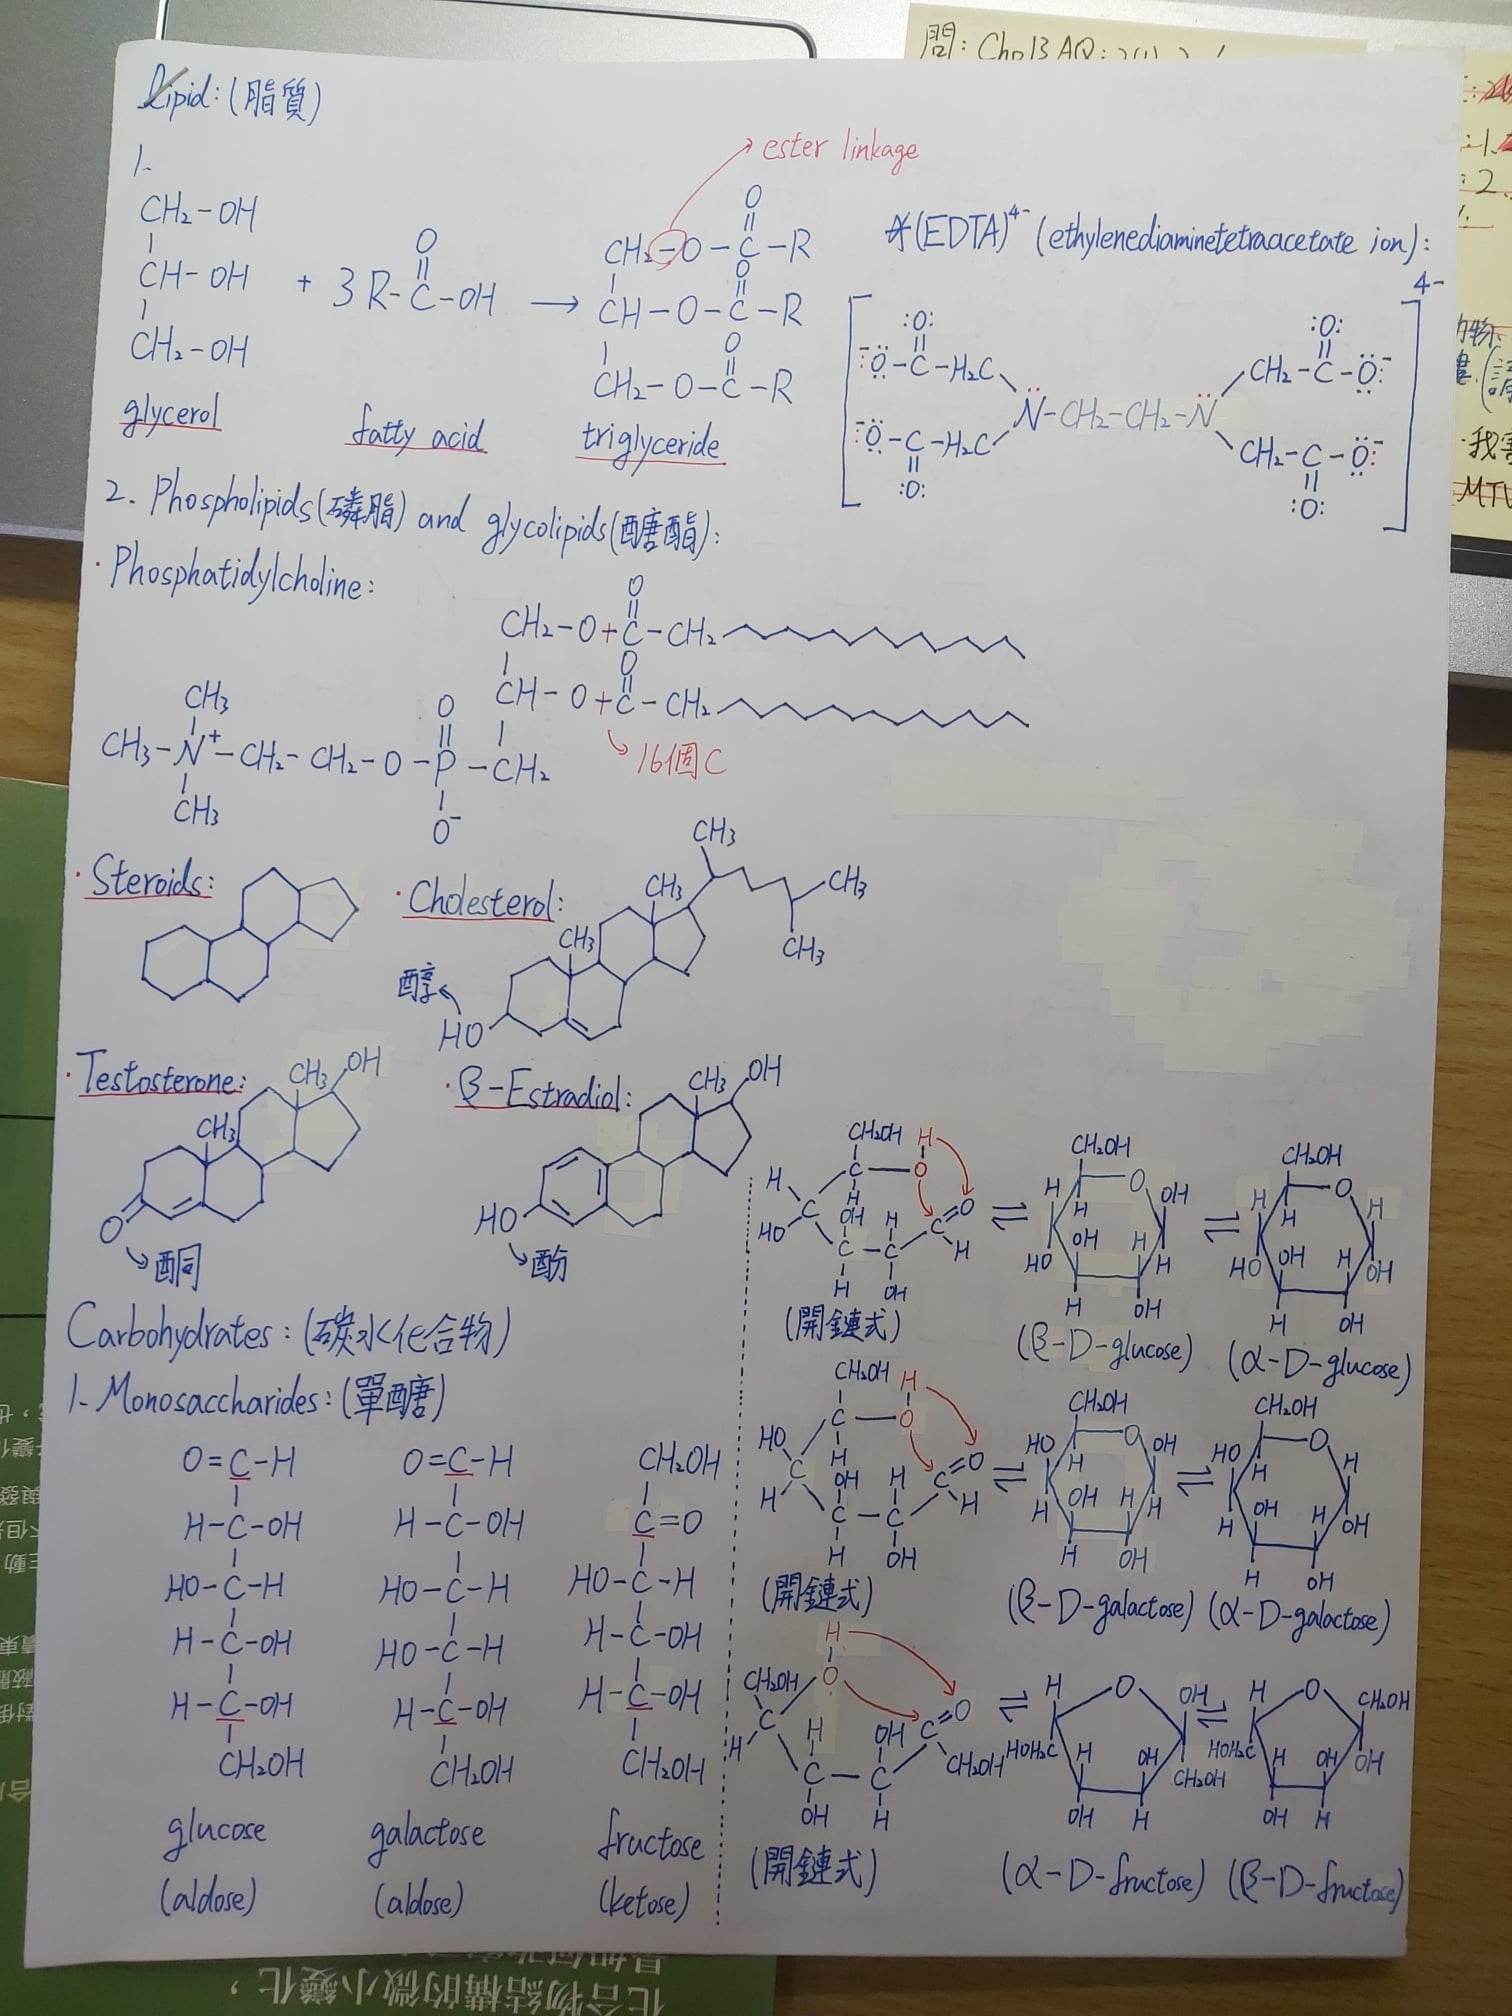 Lipid:(脂質)
1.
CH₂-OH
CH-OH
CH₂-OH
glycerol
+ 3 R-C-OH
O
fatty acid
→
ester linkage
O
CH₂-O-C-R
O
CH-O-C-R
O
CH₂-O-C-R
triglyceride
*(EDTA)⁴⁻ (ethylenediaminetetraacetate ion):
4-
:O: :O:
⁻:O-C-H₂C CH₂-C-O:⁻
N-CH₂-CH₂-N
⁻:O-C-H₂C CH₂-C-O:⁻
:O: :O:
2. Phospholipids(磷脂) and glycolipids(醣酯):
·Phosphatidylcholine:
O
CH₂-O+C-CH₂
O
CH-O+C-CH₂
16個C
CH₃ O
CH₃-N⁺-CH₂-CH₂-O-P-CH₂
CH₃ O⁻
·Steroids:
·Cholesterol:
CH₃
CH₃
CH₃
CH₃
CH₃
醇
HO
·Testosterone:
CH₃ OH
CH₃
O
酮
·β-Estradiol:
CH₃ OH
HO
酚
Carbohydrates:(碳水化合物)
1. Monosaccharides:(單醣)
O=C-H
H-C-OH
HO-C-H
H-C-OH
H-C-OH
CH₂OH
glucose
(aldose)
O=C-H
H-C-OH
HO-C-H
HO-C-H
H-C-OH
CH₂OH
galactose
(aldose)
CH₂OH
C=O
HO-C-H
H-C-OH
H-C-OH
CH₂OH
fructose
(ketose)
CH₂OH H
H C O
HO C H OH H C=O
C-C H
H OH
(開鏈式)
⇌
CH₂OH
H O OH
H
HO OH H H
H OH
(β-D-glucose)
⇌
CH₂OH
H O H
H
HO OH H OH
H OH
(α-D-glucose)
CH₂OH H
HO C O
H C H OH H C=O
C-C H
H OH
(開鏈式)
⇌
CH₂OH
HO O OH
H
H OH H H
H OH
(β-D-galactose)
⇌
CH₂OH
HO O H
H
H OH H OH
H OH
(α-D-galactose)
H
CH₂OH O
C H OH C=O
H CH₂OH
C-C
OH H
(開鏈式)
⇌
H O OH
HOH₂C H OH CH₂OH
OH H
(α-D-fructose)
⇌
H O CH₂OH
HOH₂C H OH OH
OH H
(β-D-fructose)
化合物結構的微小變化，